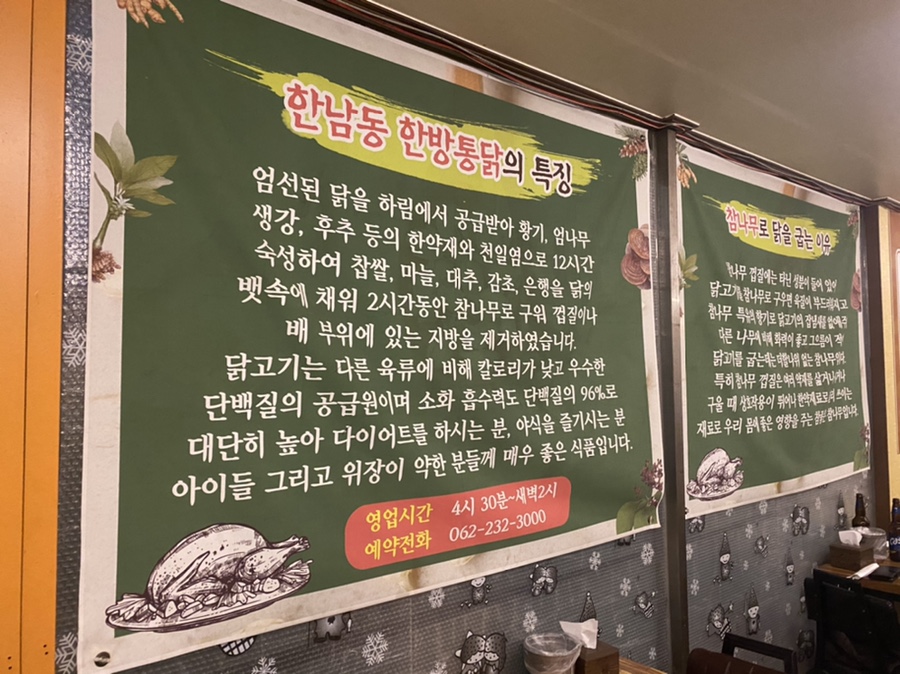 한남동 한방통닭의 특징
엄선된 닭을 하림에서 공급받아 황기, 엄나무
생강, 후추 등의 한약재와 천일염으로 12시간
숙성하여 찹쌀, 마늘, 대추, 감초, 은행을 닭의
뱃속에 채워 2시간동안 참나무로 구워 껍질이나
배 부위에 있는 지방을 제거하였습니다.
닭고기는 다른 육류에 비해 칼로리가 낮고 우수한
단백질의 공급원이며 소화 흡수력도 단백질의 96%로
대단히 높아 다이어트를 하시는 분, 야식을 즐기시는 분
아이들 그리고 위장이 약한 분들께 매우 좋은 식품입니다.
영업시간 4시 30분~새벽2시
예약전화 062-232-3000
참나무로 닭을 굽는 이유
껍질에는 타닌 성분이 들어 있어
닭고기를 참나무로 구우면 육질이 부드러워지고
참나무 특유의 향기로 닭고기의 잡냄새를 없애주며
다른 나무에 비해 화력이 좋고 그으름이 적어
닭고기를 굽는데는 더할나위 없는 참나무입니다.
특히 참나무 껍질은 여러 약재를
구울 때 상호작용이 뛰어나 한약재료로도 쓰이는
재료로 우리 몸에 좋은 영향을 주는 참나무입니다.